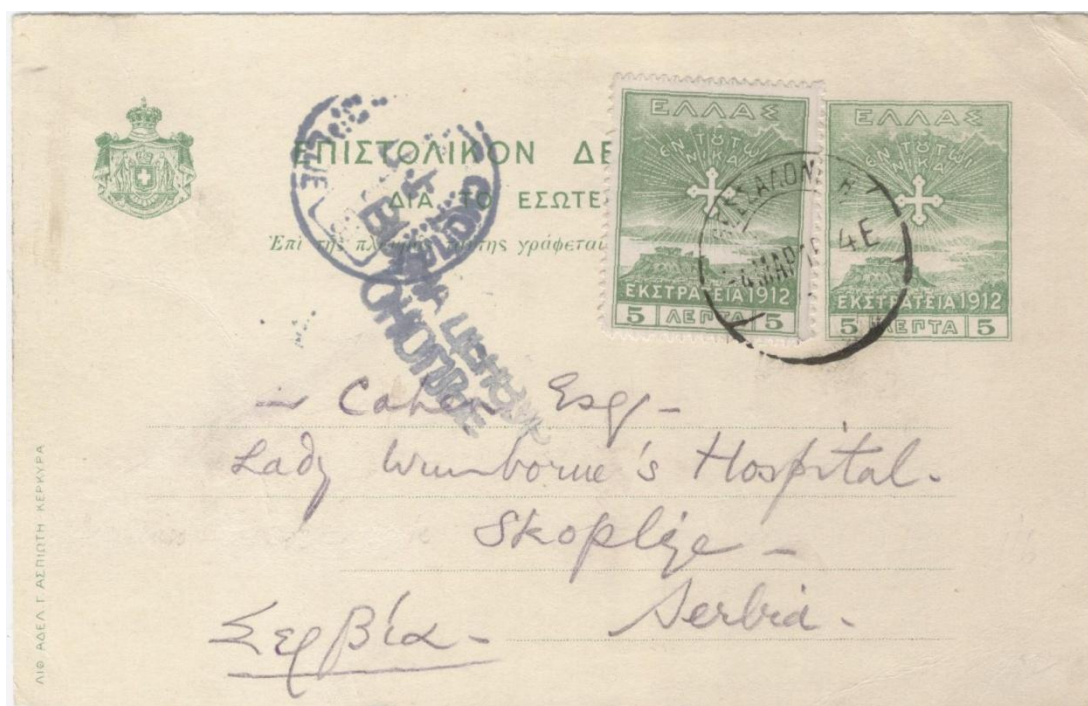 ΕΠΙΣΤΟΛΙΚΟΝ ΔΕ
ΔΙΑ ΤΟ ΕΣΩΤΕ
Ἐπὶ τῆς πλευρᾶς ταύτης γράφεται
ΕΛΛΑΣ
ΕΝ ΤΟΥΤΩΙ
ΝΙΚΑ
ΕΚΣΤΡΑΤΕΙΑ 1912
5 ΛΕΠΤΑ 5
ΕΛΛΑΣ
ΕΝ ΤΟΥΤΩΙ
ΝΙΚΑ
ΕΚΣΤΡΑΤΕΙΑ 1912
5 ΛΕΠΤΑ 5
4 ΜΑΡ 4Ε
Cohen Esq -
Lady Wimborne's Hospital.
Skoplije -
Serbia.
Σερβία -
ΛΙΘ. ΑΔΕΛ. Γ. ΑΣΠΙΩΤΗ ΚΕΡΚΥΡΑ